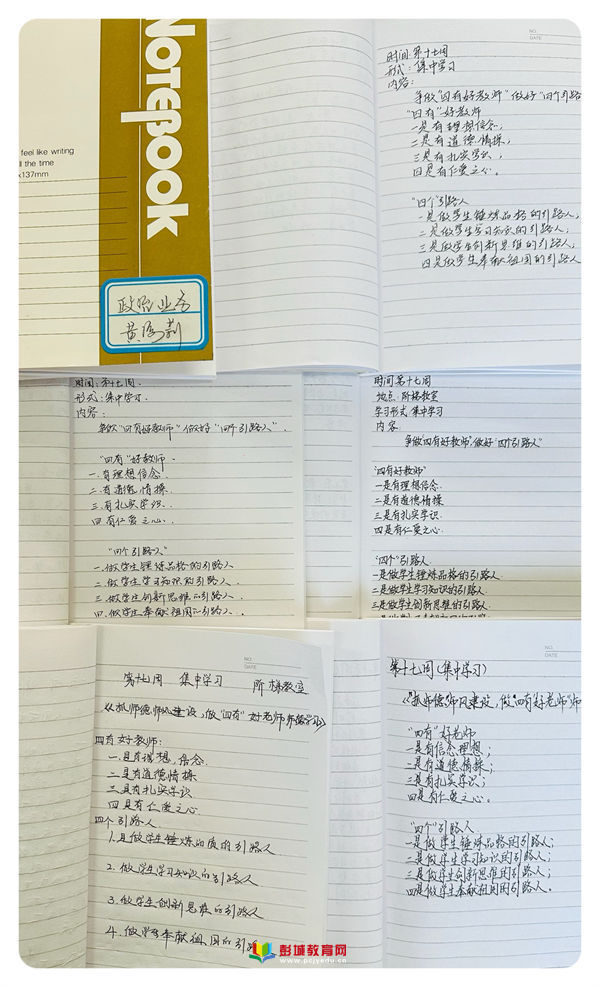 NOTEBOOK
feel like writing
ll the time
x137mm
政治业务
NO.
DATE
时间:第十七周
形式:集中学习
内容:
争做"四有好教师"做好"四个引路
"四有"好教师
一是有理想信念,
二是有道德情操,
三是有扎实学识,
四是有仁爱之心。
"四个"引路人
一是做学生锤炼品格的引路人,
二是做学生学习知识的引路人,
三是做学生创新思维的引路人,
四是做学生奉献祖国的引路人
时间:第十七周.
形式:集中学习.
内容:
争做"四有好教师",做好"四个引路人".
"四有"好教师.
一.有理想信念.
二.有道德情操.
三.有扎实学识.
四.有仁爱之心.
"四个引路人"
一.做学生锤炼品格的引路人
二.做学生学习知识的引路人.
三.做学生创新思维的引路人.
四.做学生奉献祖国的引路人.
时间 第十七周
地点:阶梯教室
学习形式:集中学习
内容.
争做"四有好教师",做好"四个引路人"
"四有好教师"
一是有理想信念
二是有道德情操
三是有扎实学识
四是有仁爱之心.
"四个"引路人
一是做学生锤炼品格的引路人
二是做学生学习知识的引路人
三是做学生创新思维的引路人
NO.
DATE
第十七周 集中学习 阶梯教室
《抓师德师风建设,做"四有"好老师
四有好教师:
一.是有理想,信念
二.是有道德情操
三.是有扎实学识
四.是有仁爱之心
四个引路人
1.是做学生锤炼品质的引路人
2.做学生学习知识的引路人
3.做学生创新思维的引路人
4.做学生奉献祖国的引路
NO.
DATE
第十七周(集中学习)
《抓师德师风建设,做"四有好老师"师
"四有"好老师
一是有信念理想;
二是有道德情操;
三是有扎实学识;
四是有仁爱之心。
"四个"引路人
一是做学生锤炼品格的引路人;
二是做学生学习知识的引路人;
三是做学生创新思维的引路人;
四是做学生奉献祖国的引路人。
彭城教育网
www.pcjyedu.cn